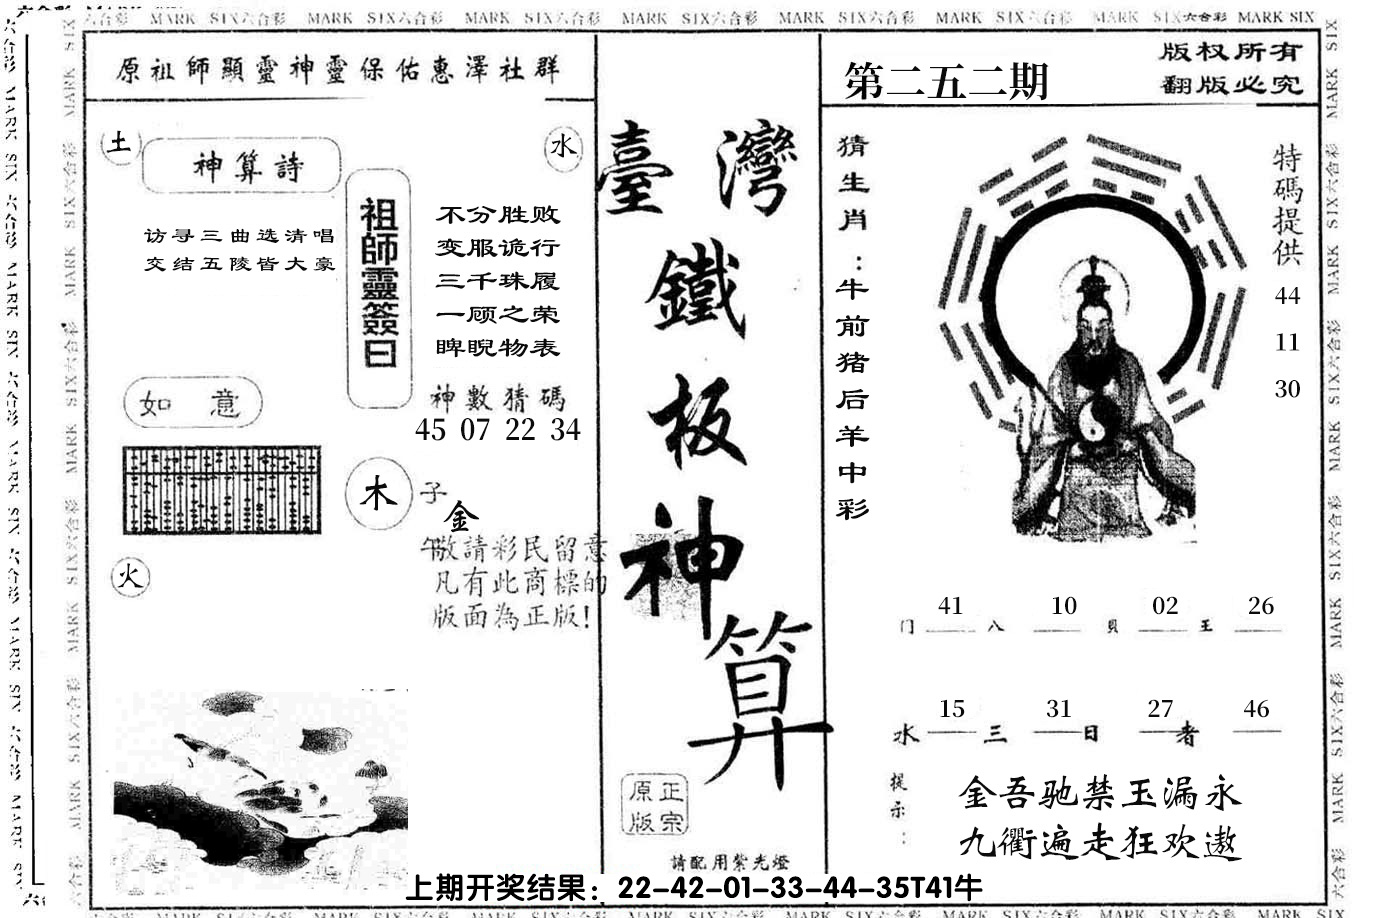 六合彩 MARK SIX六合彩 MARK SIX六合彩 MARK SIX六合彩 MARK SIX六合彩 MARK SIX六合彩 MARK SIX六合彩 MARK SIX六合彩 MARK SIX
原祖師顯靈神靈保佑惠澤社群
土
神算詩
水
访寻三曲选清唱
交结五陵皆大豪
祖師靈簽曰
不分胜败
变服诡行
三千珠履
一顾之荣
睥睨物表
如 意
神數猜碼
45 07 22 34
木
子
金
午
敬請彩民留意
凡有此商標的
版面為正版!
火
臺灣
鐵
板
神
算
正宗
原版
請配用紫光燈
第二五二期
版权所有
翻版必究
猜生肖:牛前猪后羊中彩
特碼提供
44
11
30
41 10 02 26
门 八 貝 王
15 31 27 46
水 三 日 者
提示:
金吾驰禁玉漏永
九衢遍走狂欢遨
上期开奖结果：22-42-01-33-44-35T41牛